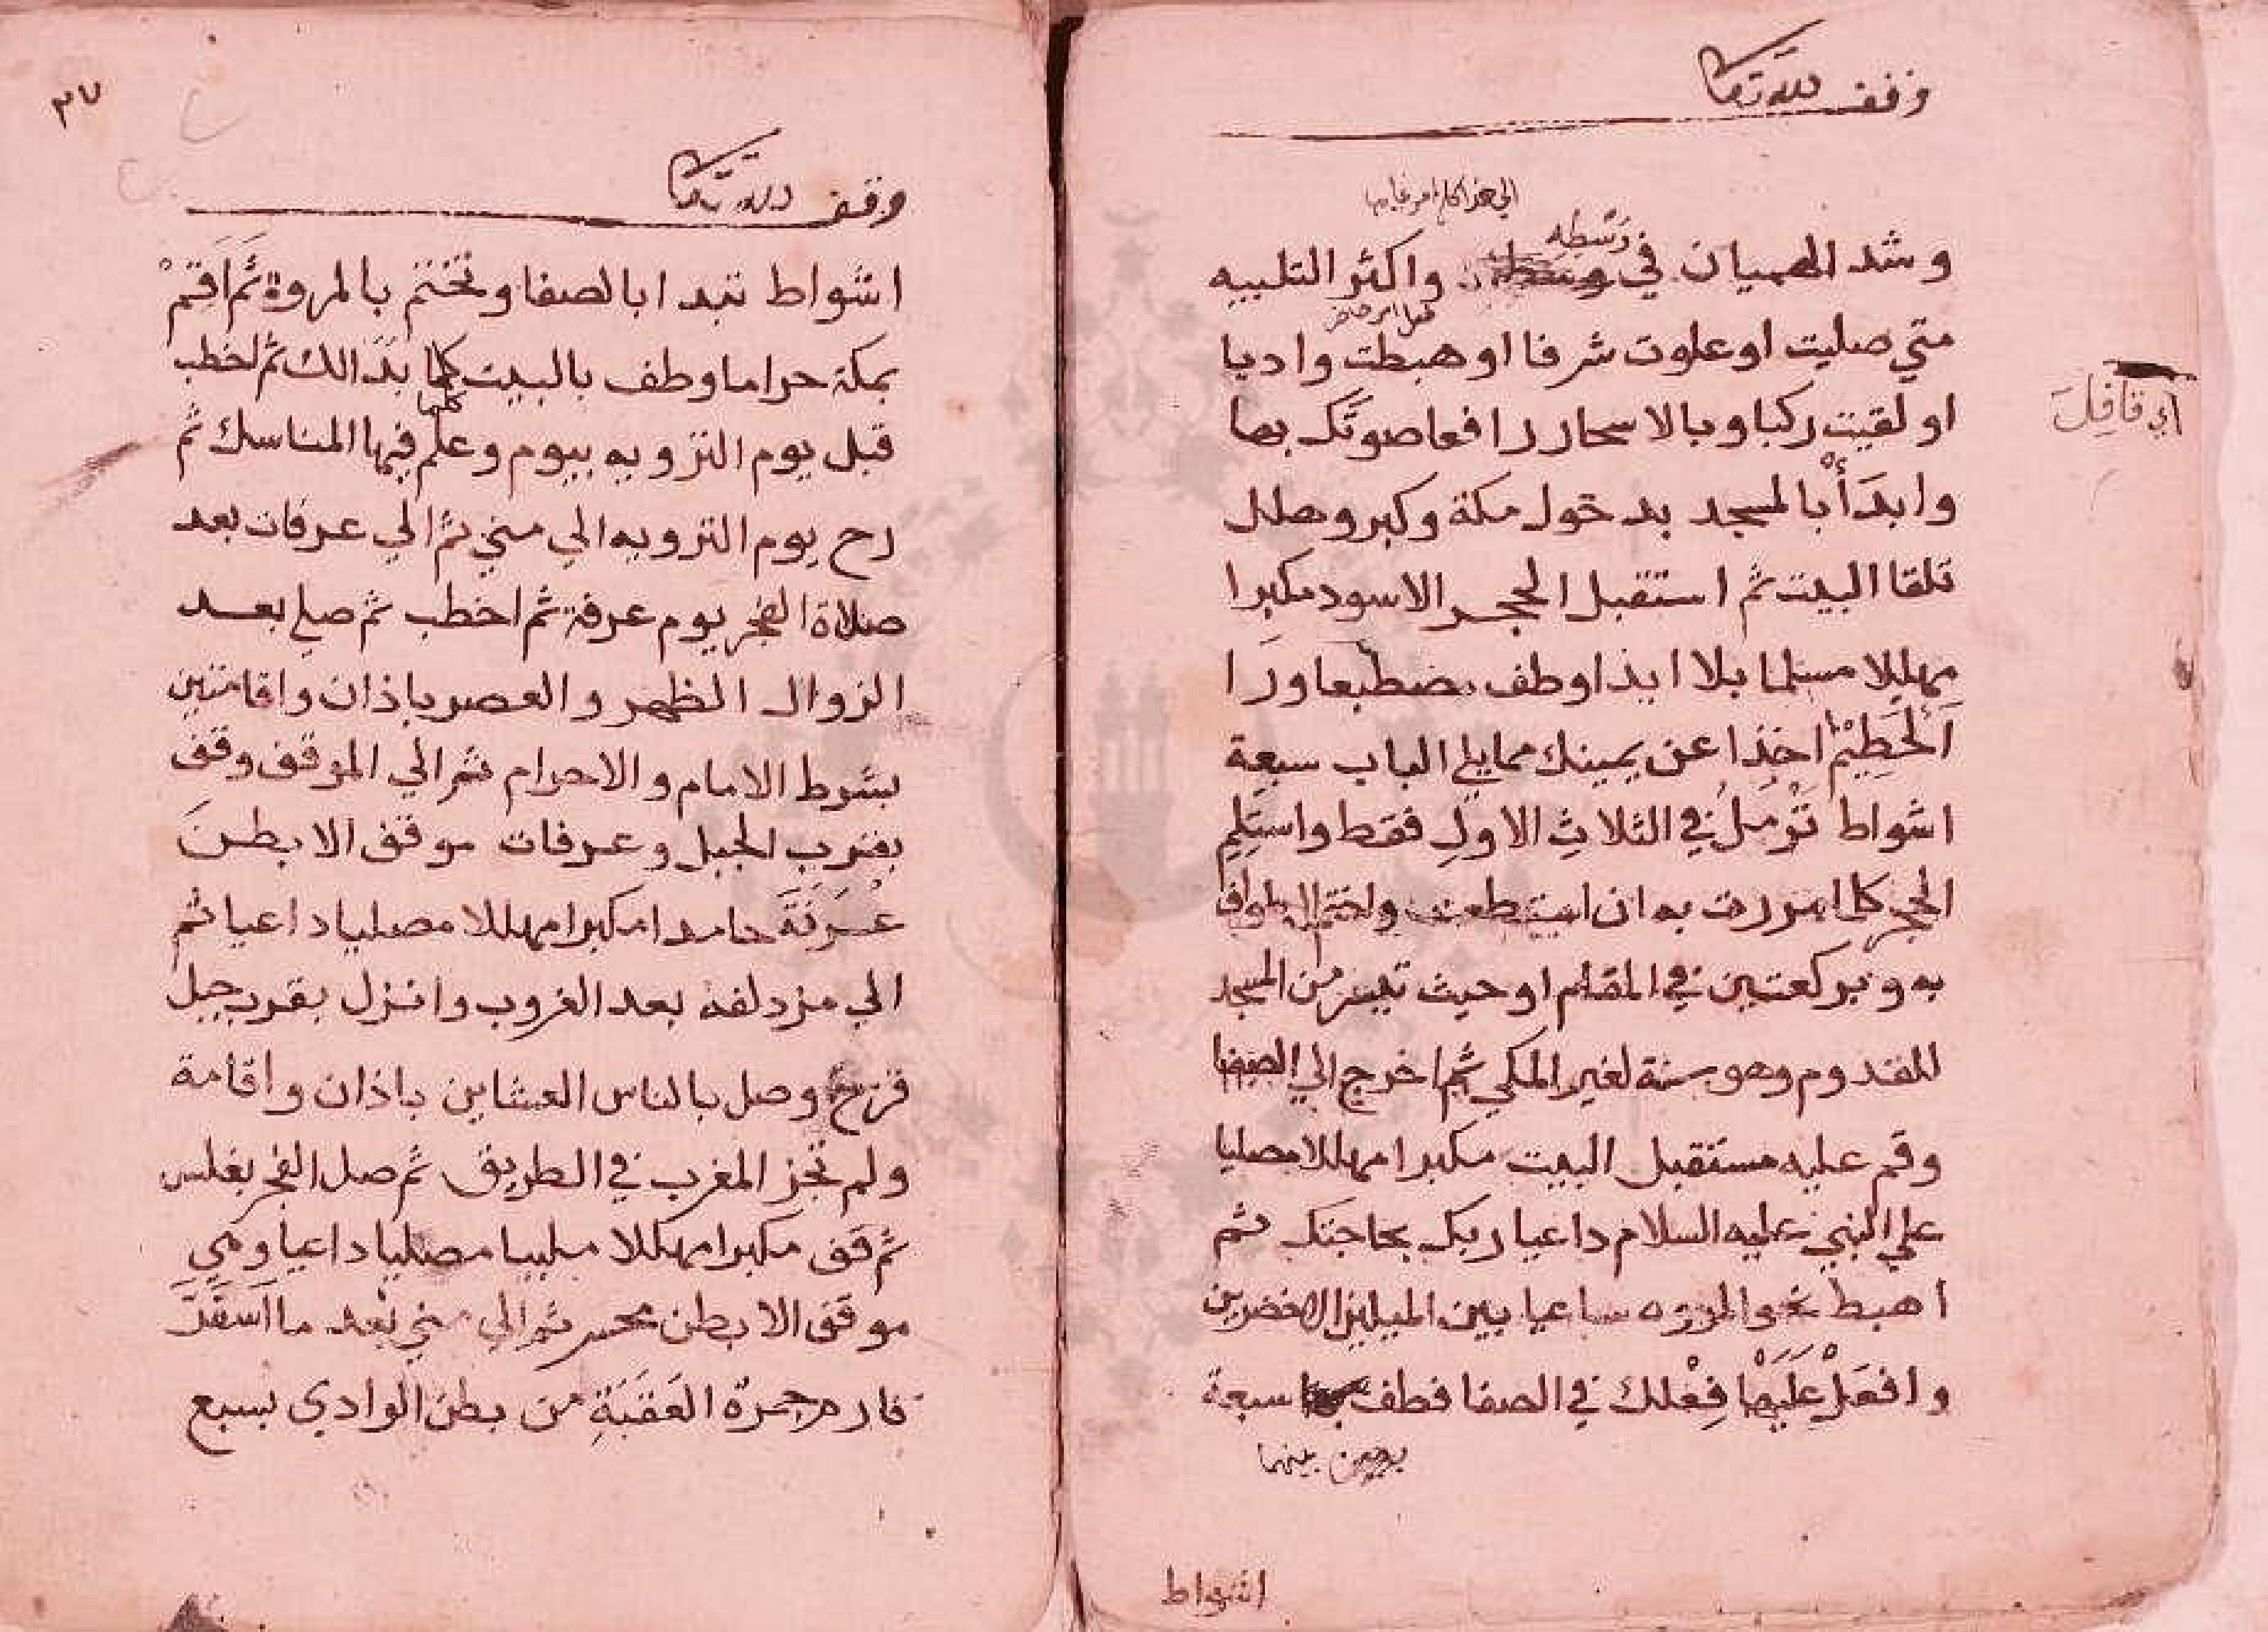 وقف لله تعالى
وشد الهميان في وسطه واكثر التلبيه
متي صليت او علوت شرفا او هبطت واديا
او لقيت ركبا وبالاسحار رافعا صوتك بها
وابدأ بالمسجد بدخول مكة وكبر وهلل
تلقا البيت ثم استقبل الحجر الاسود مكبرا
مهللا مستلما بلا ايذا وطف مضطبعا ورا
الحطيم اخذا عن يمينك مما يلي الباب سبعة
اشواط ترمل في الثلاث الاول فقط واستلم
الحجر كلما مررت به ان استطعت واختم الطواف
به وبركعتين في المقام او حيث تيسر من المسجد
للقدوم وهو سنة لغير المكي ثم اخرج الي الصفا
وقم عليه مستقبل البيت مكبرا مهللا مصليا
علي النبي عليه السلام داعيا ربك بحاجتك ثم
اهبط نحو المروه ساعيا بين الميلين الاخضرين
وافعل عليها فعلك في الصفا فطف سبعة
بينهما
اشواط
اي قافلة
٣٧
وقف لله تعالى
اشواط تبدا بالصفا وتختم بالمروة ثم اقم
بمكة حراما وطف بالبيت كلما بدالك ثم اخطب
قبل يوم الترويه بيوم وعلم فيها المناسك ثم
رح يوم الترويه الي مني ثم الي عرفات بعد
صلاة الفجر يوم عرفة ثم اخطب ثم صلي بعد
الزوال الظهر والعصر باذان واقامتين
بشرط الامام والاحرام ثم الي الموقف وقف
بقرب الجبل وعرفات موقف الا بطن
عرنة حامدا مكبرا مهللا مصليا داعيا ثم
الي مزدلفة بعد الغروب وانزل بقرب جبل
قزح وصل بالناس العشاين باذان واقامة
ولم تجز المغرب في الطريق ثم صل الفجر بغلس
ثم قف مكبرا مهللا ملبيا مصليا داعيا وهي
موقف الا بطن محسر ثم الي مني بعد ما اسفر
فارم جمرة العقبة من بطن الوادي بسبع